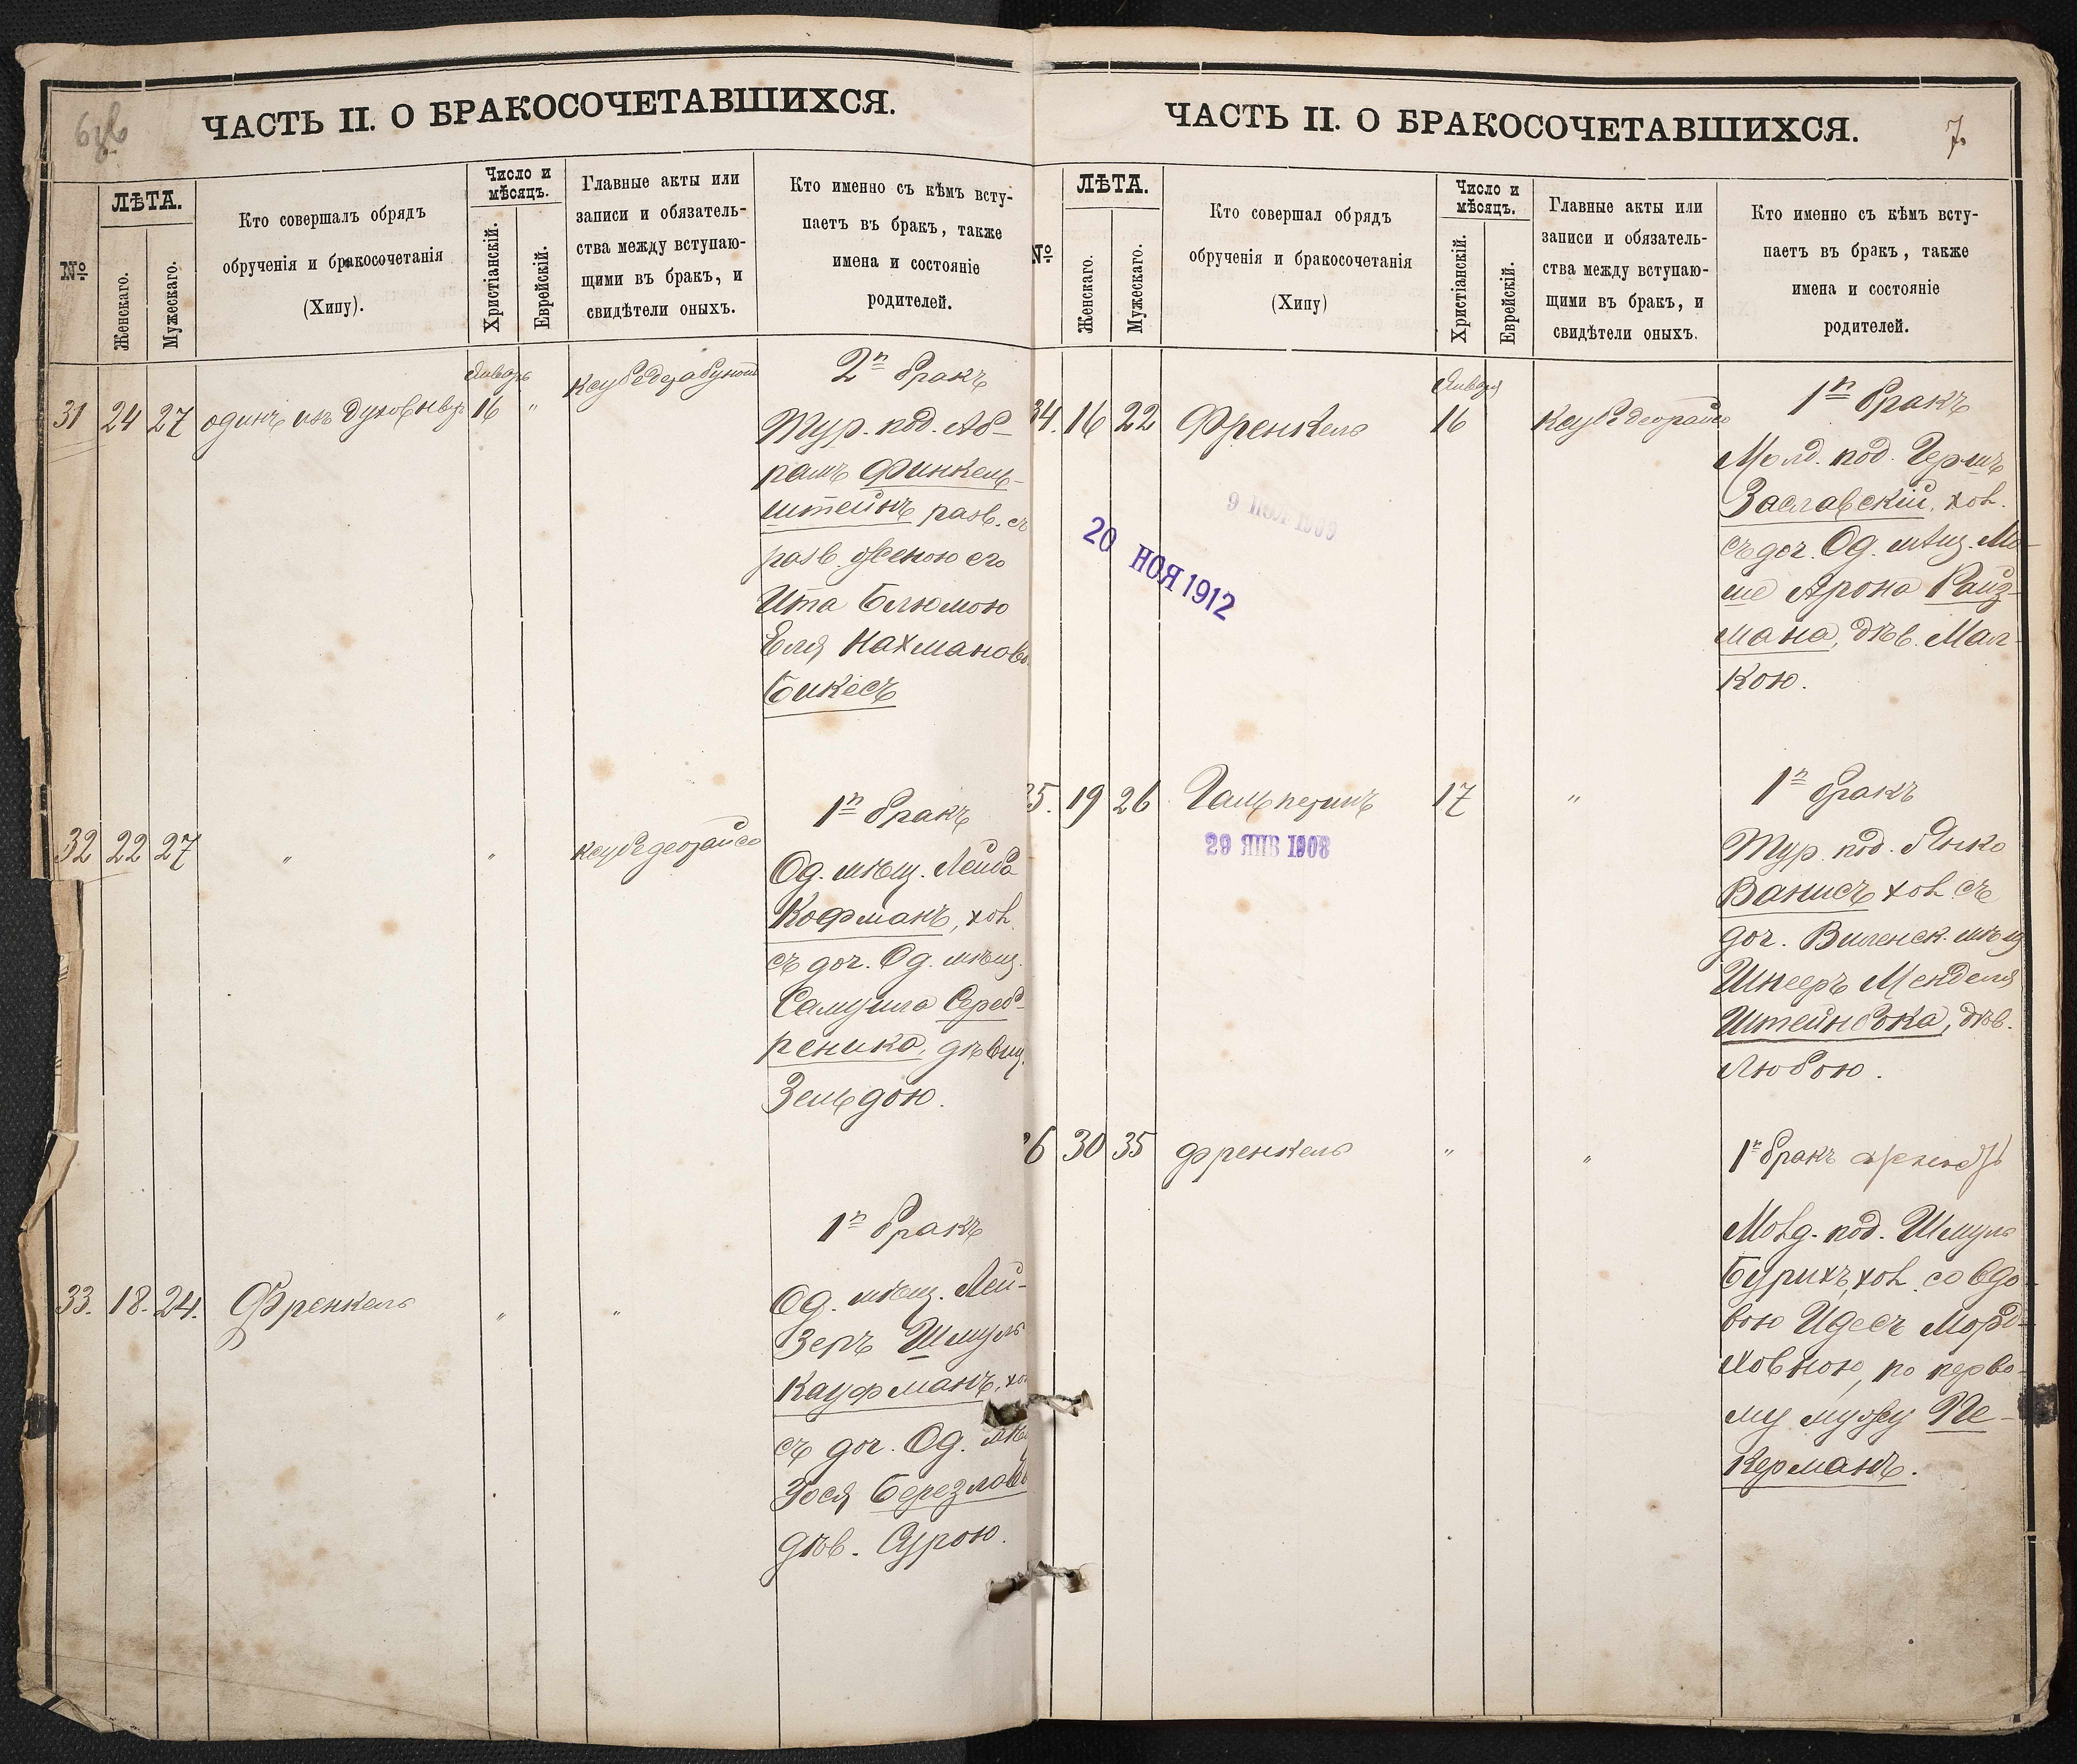 ЧАСТЬ II. О БРАКОСОЧЕТАВШИХСЯ.
№
ЛѢТА.
Женскаго.
Мужескаго.
Кто совершалъ обрядъ
обрученія и бракосочетанія
(Хипу).
Число и
мѣсяцъ.
Христіанскій.
Еврейскій.
Главные акты или
записи и обязатель-
ства между вступаю-
щими въ бракъ, и
свидѣтели оныхъ.
Кто именно съ кѣмъ всту-
паетъ въ бракъ, также
имена и состояніе
родителей.
31 24 27 одинъ изъ духовн
Январь
16 "
2й бракъ
Тур. под. Аб-
рамъ Финкель-
штейнъ разв. съ
разв. женою его
Ита Блюмою
Еля Нахманов
Бикесъ
32 22 27 " " Ксубедеорайсо
1й бракъ
Од. мѣщ. Лейба
Кофманъ, хол.
съ доч. Од. мѣщ.
Самуила Сереб-
реника, дѣвиц.
Зельдою.
33. 18. 24. Френкель " "
1й бракъ
Од. мѣщ. Лей-
зеръ Шмуль
Кауфманъ, хол
съ доч. Од. мѣщ
Зося
дѣв. Сурою.
ЧАСТЬ II. О БРАКОСОЧЕТАВШИХСЯ.
7.
№
ЛѢТА.
Женскаго.
Мужескаго.
Кто совершал обрядъ
обрученія и бракосочетанія
(Хипу)
Число и
мѣсяцъ.
Христіанскій.
Еврейскій.
Главные акты или
записи и обязатель-
ства между вступаю-
щими въ бракъ, и
свидѣтели оныхъ.
Кто именно съ кѣмъ всту-
паетъ въ бракъ, также
имена и состояніе
родителей.
34. 16 22 Френкель
Января
16 Ксубедеорайсо
20 НОЯ 1912
1й бракъ
Молд. под. Гершъ
Заславскій, хол.
съ доч. Од. мѣщ. Мо-
ше Арона Райз-
мана, дѣв. Мал-
кою.
35. 19 26 Гальперинъ 17 "
29 ЯНВ 1908
1й бракъ
Тур. под. Янко
Ванисъ хол. съ
доч. Виленск. мѣщ
Шнееръ Менделя
дѣв.
Любою.
36 30 35 Френкель " "
1й бракъ
Молд. под. Шмуль
Бурихъ, хол. со вдо-
вою Идесъ Морд-
ховною, по перво-
му мужу Пе-
керманъ.